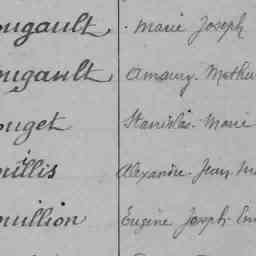 ougault . Marie Joseph
ougault Amaury Mathu
ouget Stanislas Marie
uillis Alexandre Jean M
uillion Eugène Joseph Em